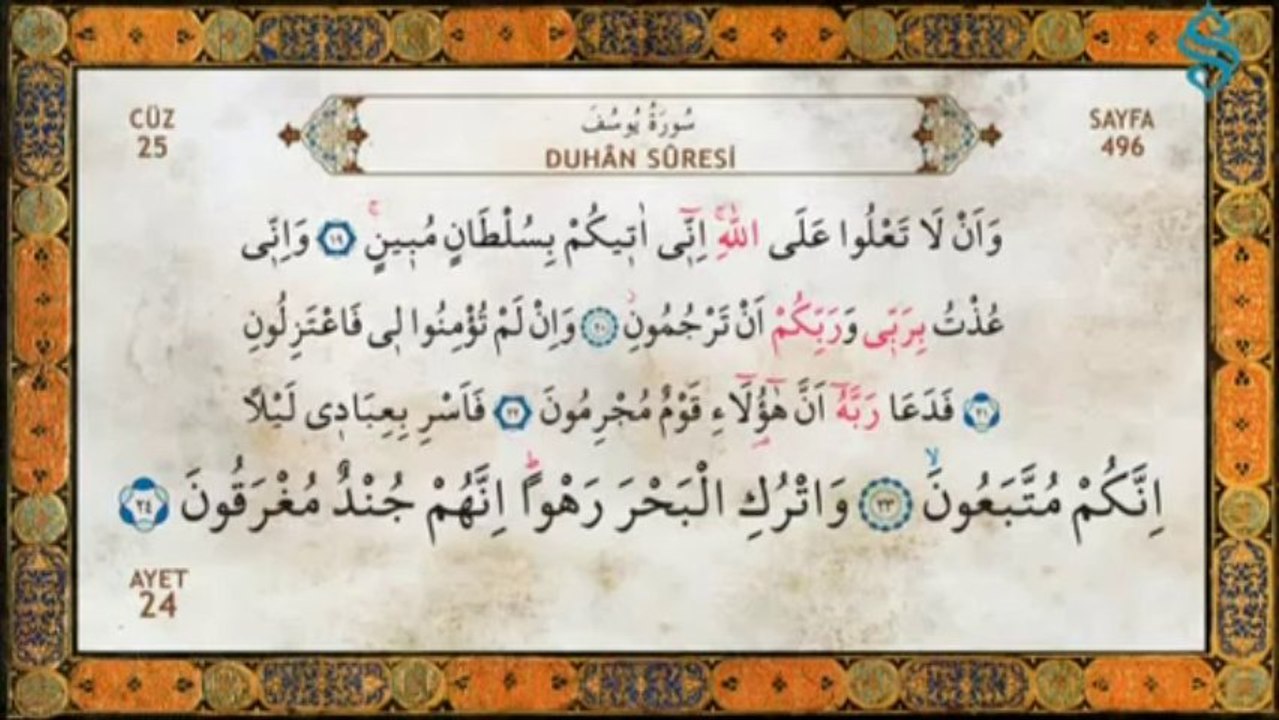 CÜZ
25
سُورَةُ يُوسُفَ
DUHÂN SÛRESİ
SAYFA
496
وَاَنْ لَا تَعْلُوا عَلَى اللّٰهِۚ اِنّٖٓى اٰتٖيكُمْ بِسُلْطَانٍ مُبٖينٍۚ ﴿١٩﴾ وَاِنّٖى
عُذْتُ بِرَبّٖى وَرَبِّكُمْ اَنْ تَرْجُمُونِۙ ﴿٢٠﴾ وَاِنْ لَمْ تُؤْمِنُوا لٖى فَاعْتَزِلُونِ
﴿٢١﴾ فَدَعَا رَبَّهُٓ اَنَّ هٰٓؤُ۬لَٓاءِ قَوْمٌ مُجْرِمُونَ ﴿٢٢﴾ فَاَسْرِ بِعِبَادٖى لَيْلًا
اِنَّكُمْ مُتَّبَعُونَۙ ﴿٢٣﴾ وَاتْرُكِ الْبَحْرَ رَهْوًاۜ اِنَّهُمْ جُنْدٌ مُغْرَقُونَ ﴿٢٤﴾
AYET
24